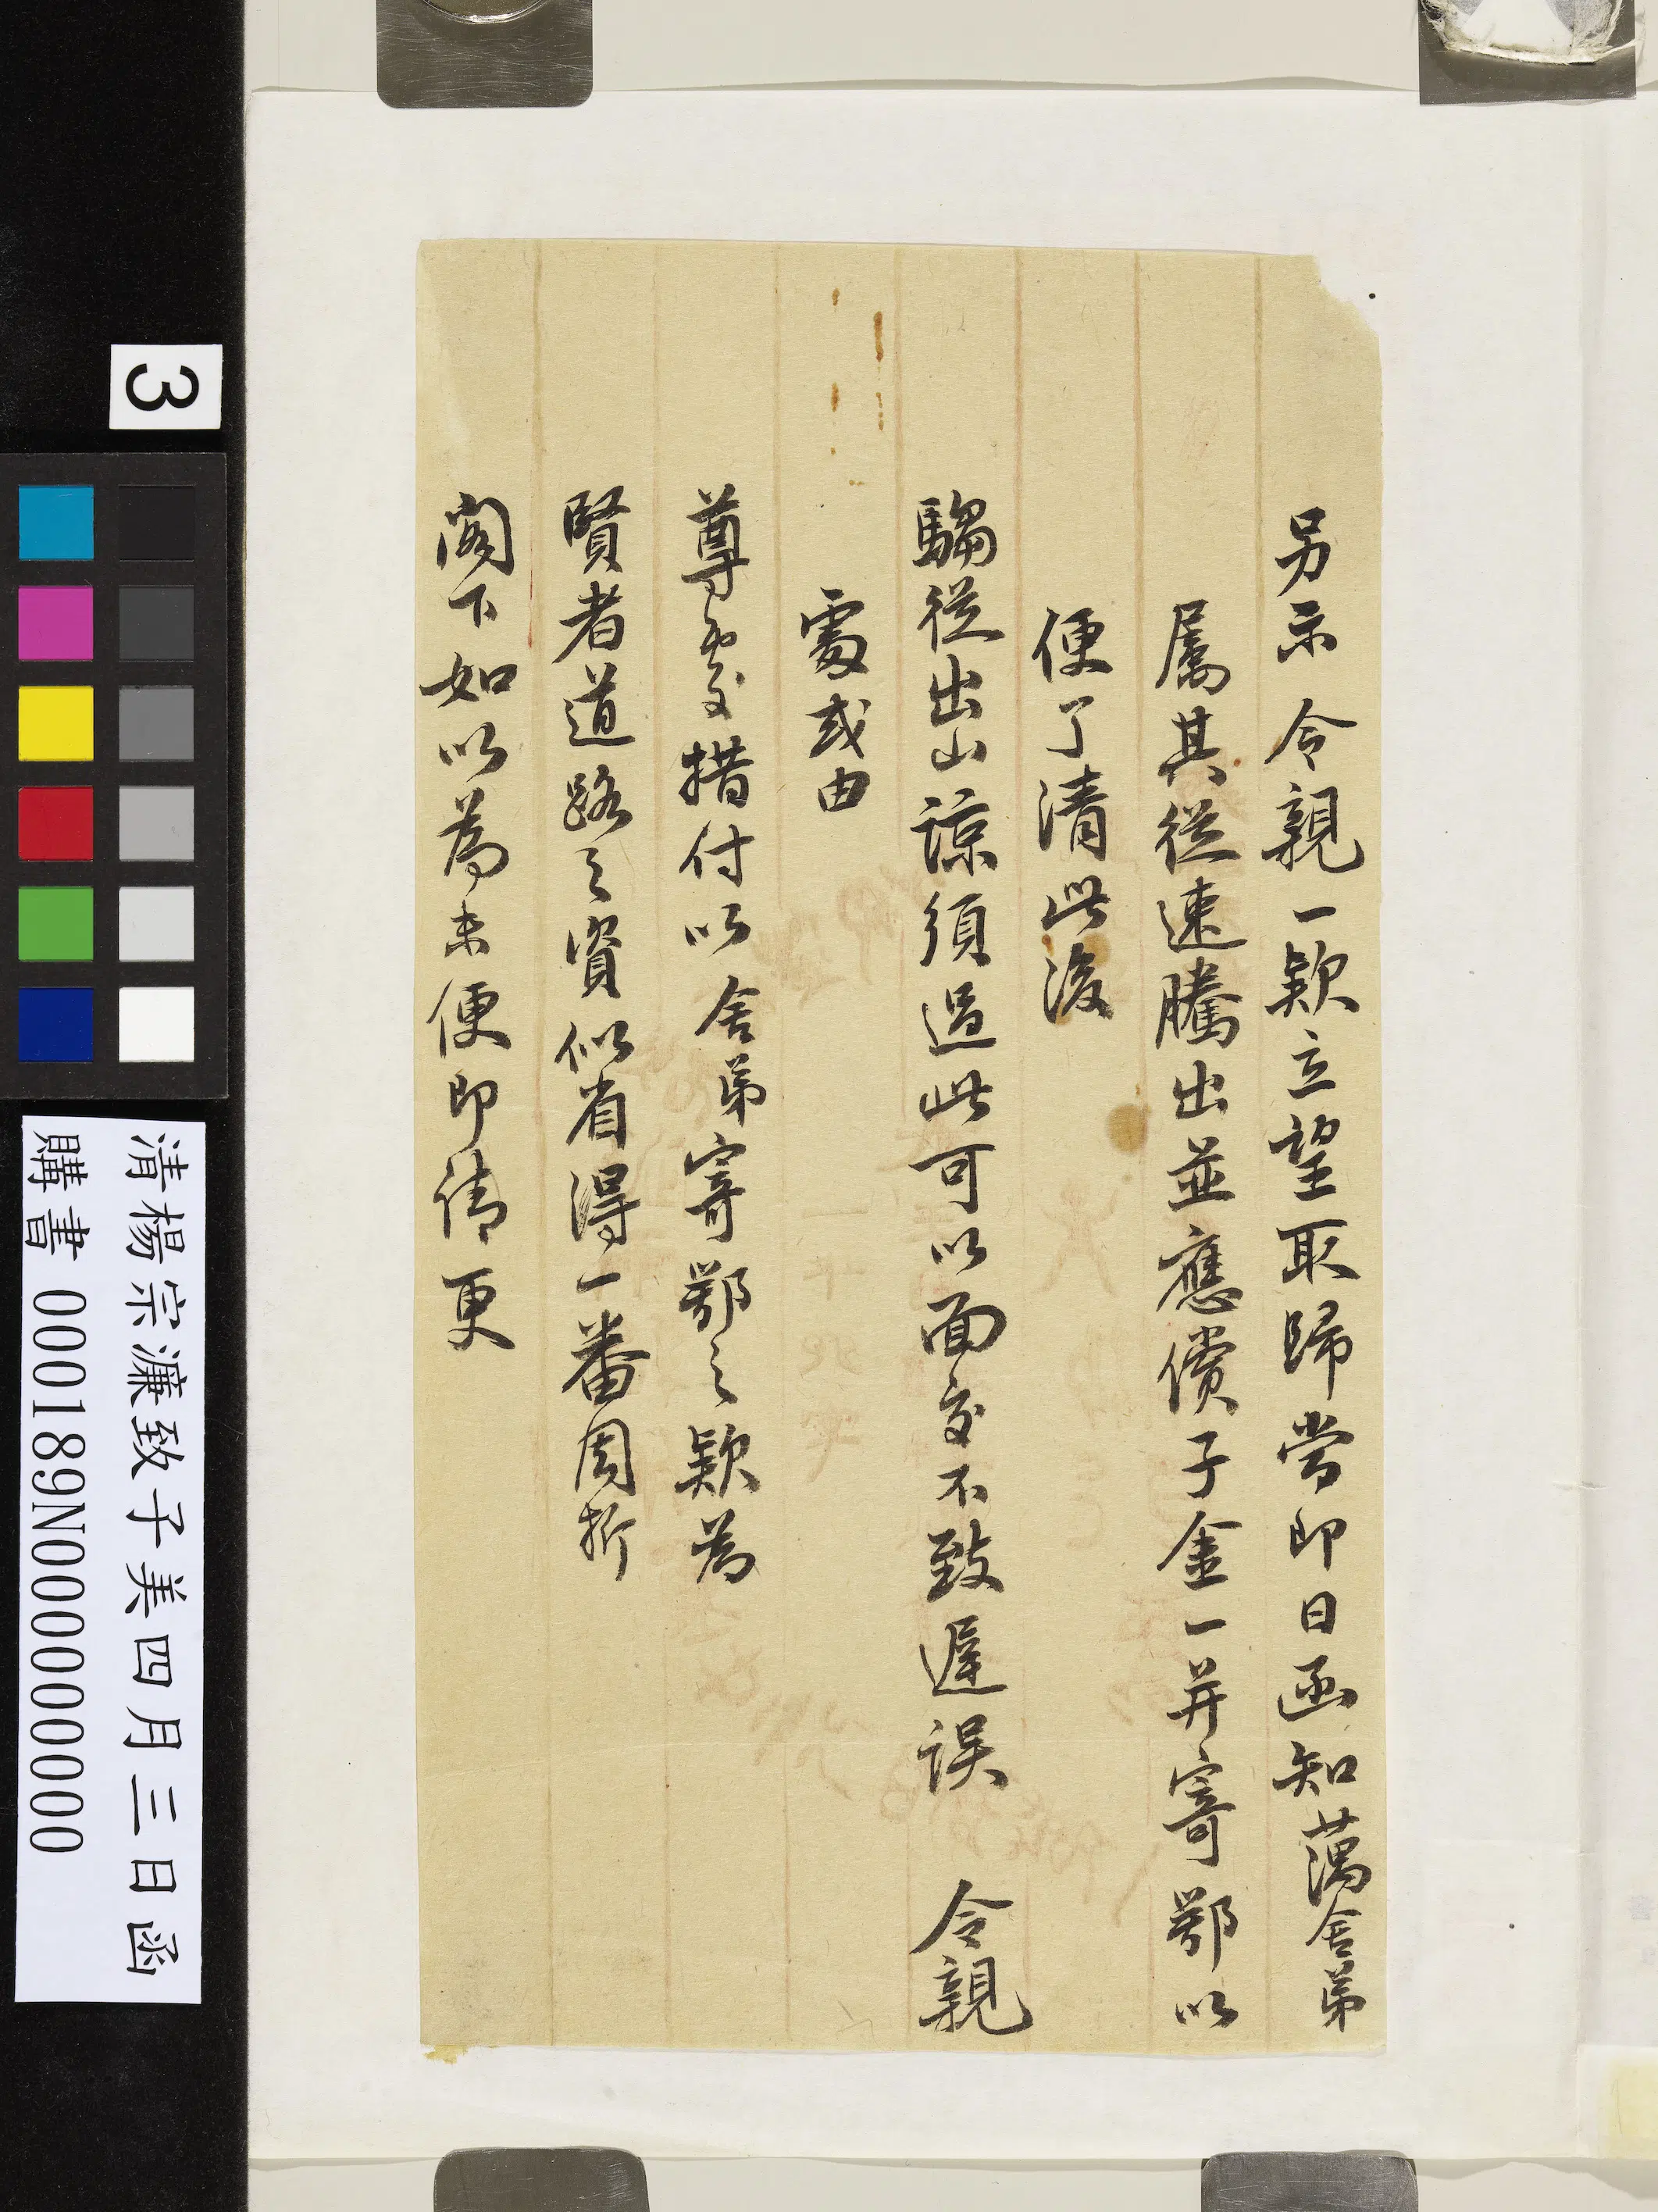 另示 令親一款立望取歸當即日函知蕅舍弟
屬其從速騰出並應償子金一并寄鄂以
便了清此後
騶從出山諒須過此可以面交不致遲誤 令親
處或由
尊處措付以舍弟寄鄂之款為
賢者道路之資似省得一番周折
閣下如以為未便即請更
3
清楊宗濂致子美四月三日函
購書 000189N000000000